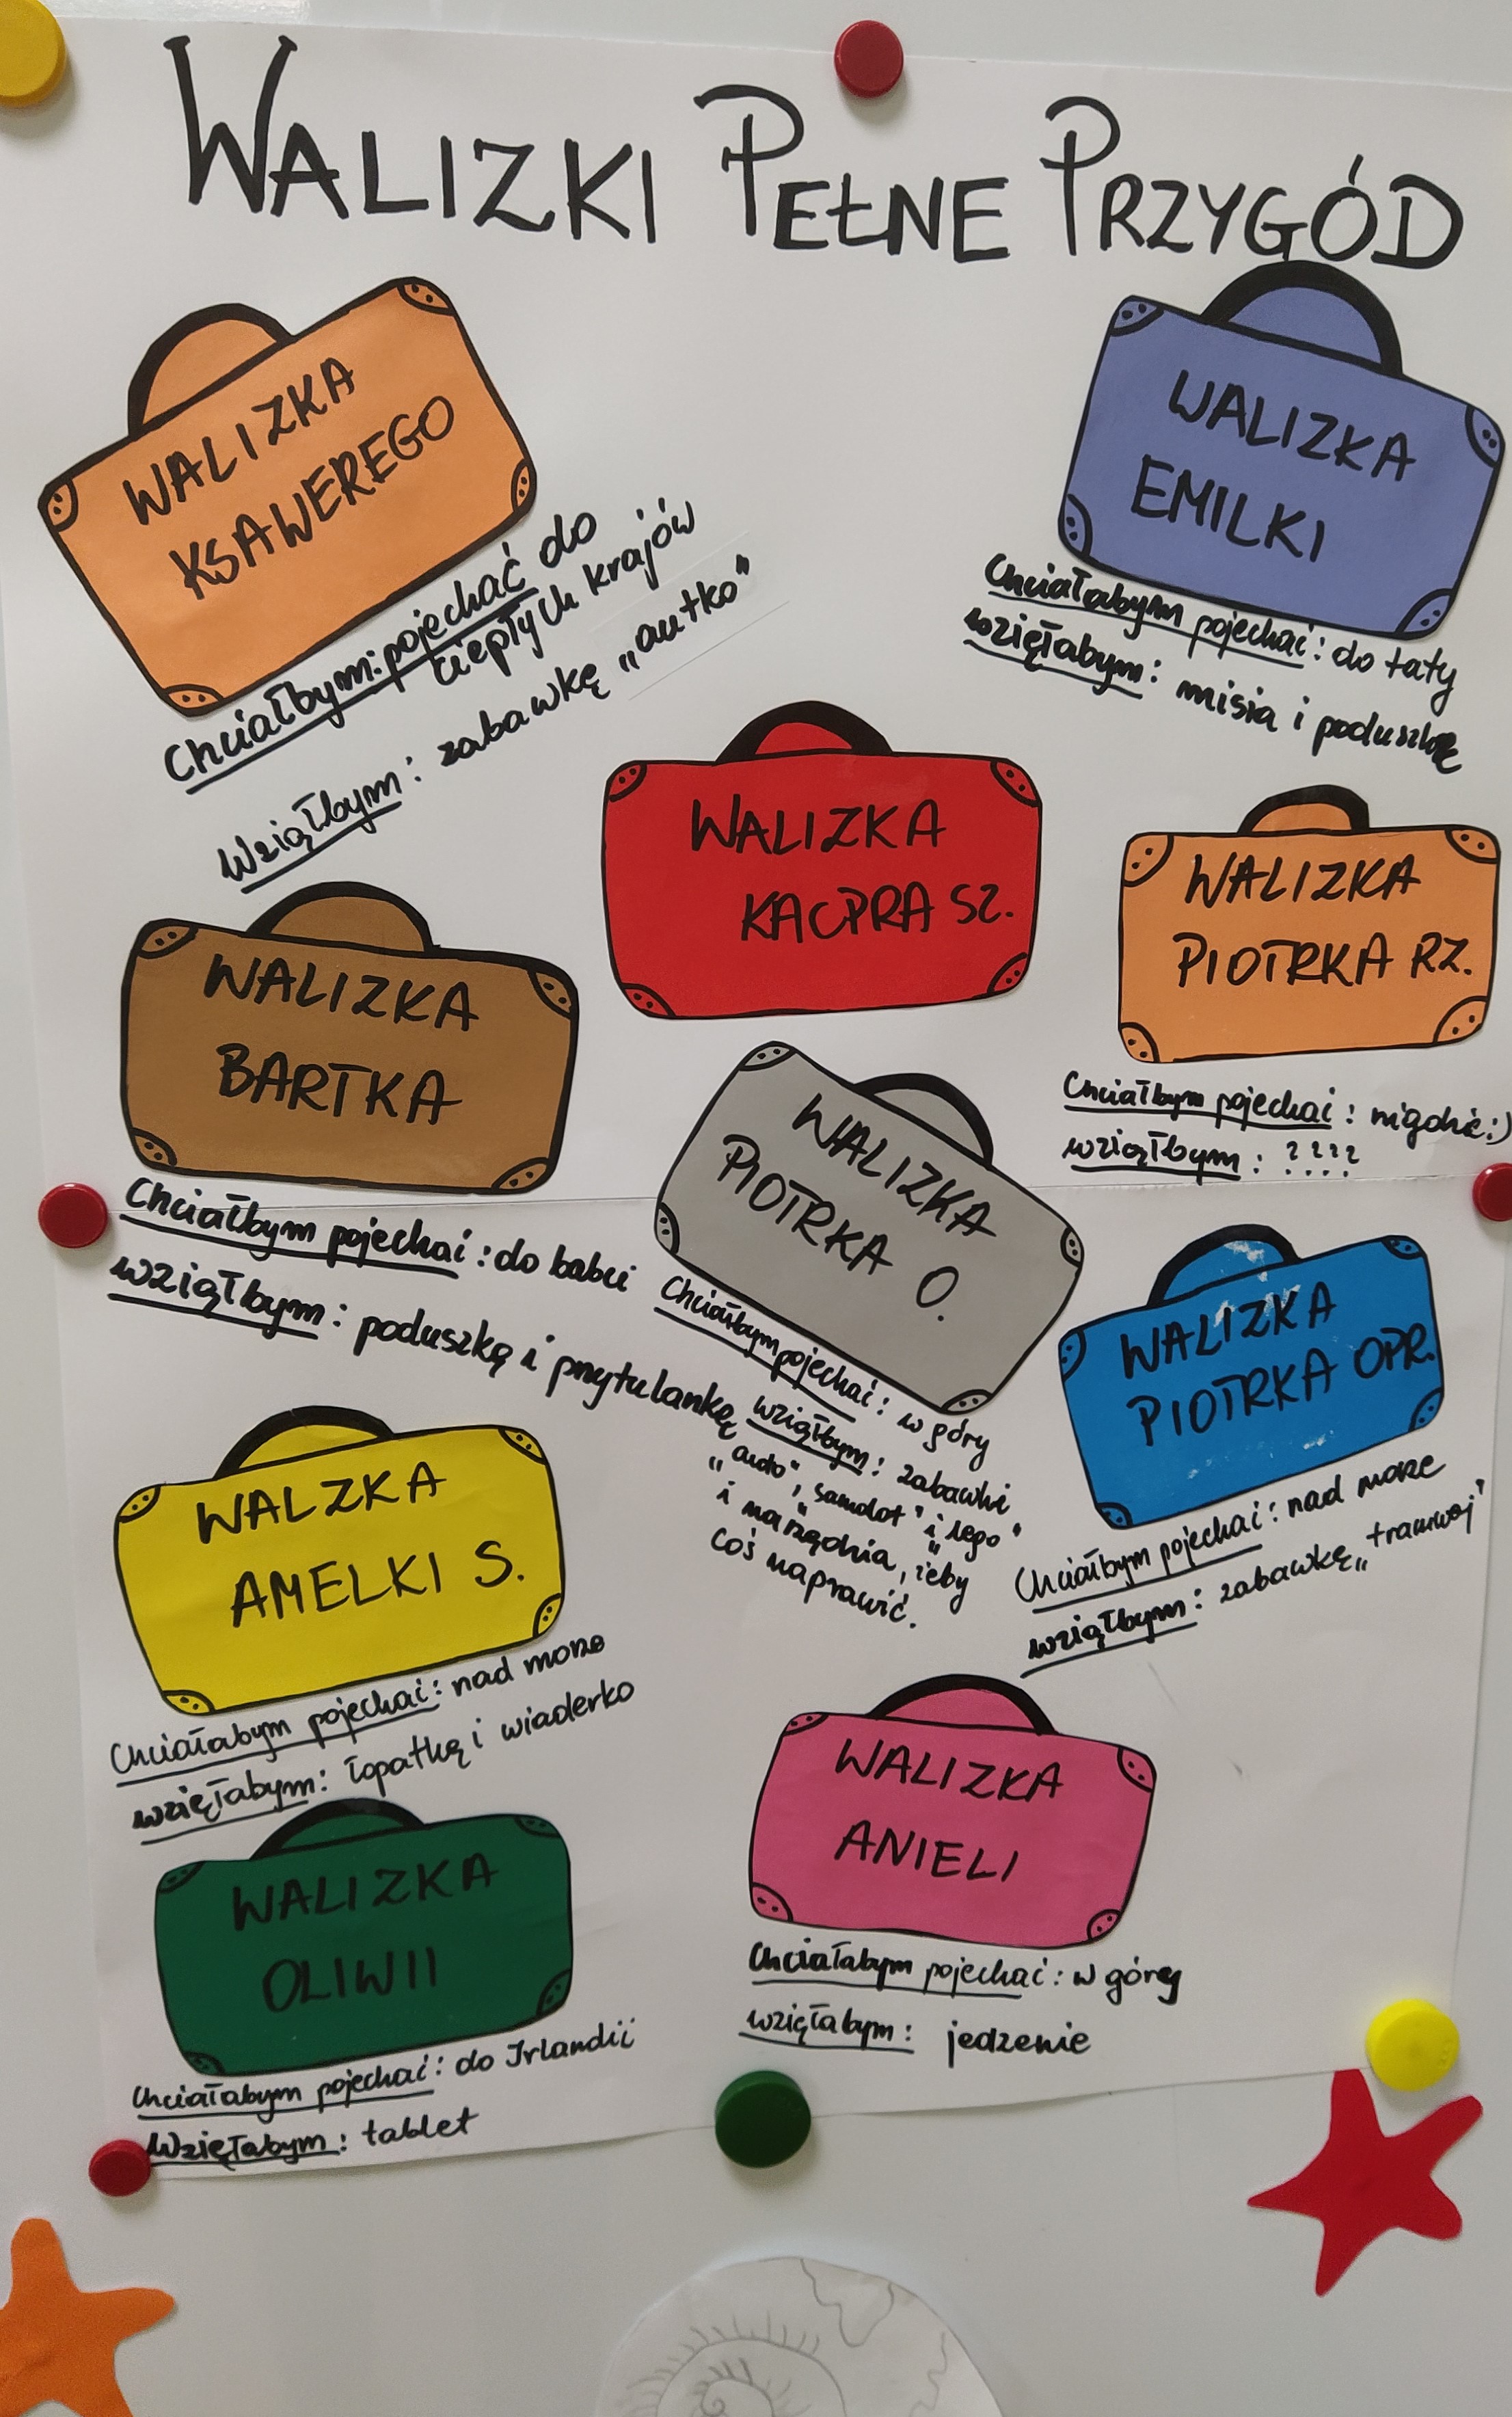 WALIZKI PEŁNE PRZYGÓD
WALIZKA
KSAWEREGO
Chciałbym: pojechać do
ciepłych krajów
Wziąłbym: zabawkę „autko"
WALIZKA
EMILKI
Chciałabym pojechać: do taty
wzięłabym: misia i poduszkę
WALIZKA
KACPRA SZ.
WALIZKA
PIOTRKA RZ.
Chciałbym pojechać: nigdzie :)
wziąłbym: ????
WALIZKA
BARTKA
Chciałbym pojechać: do babci
wziąłbym: poduszkę i przytulankę
WALIZKA
PIOTRKA O.
Chciałbym pojechać: w góry
wziąłbym: zabawki
„auto", „samolot" i „lego"
i narzędzia, żeby
coś naprawić.
WALIZKA
PIOTRKA OPR.
Chciałbym pojechać: nad morze
wziąłbym: zabawkę „tramwaj"
WALZKA
AMELKI S.
Chciałabym pojechać: nad morze
wzięłabym: łopatkę i wiaderko
WALIZKA
OLIWII
Chciałabym pojechać: do Irlandii
Wzięłabym: tablet
WALIZKA
ANIELI
Chciałabym pojechać: w góry
wzięłabym: jedzenie